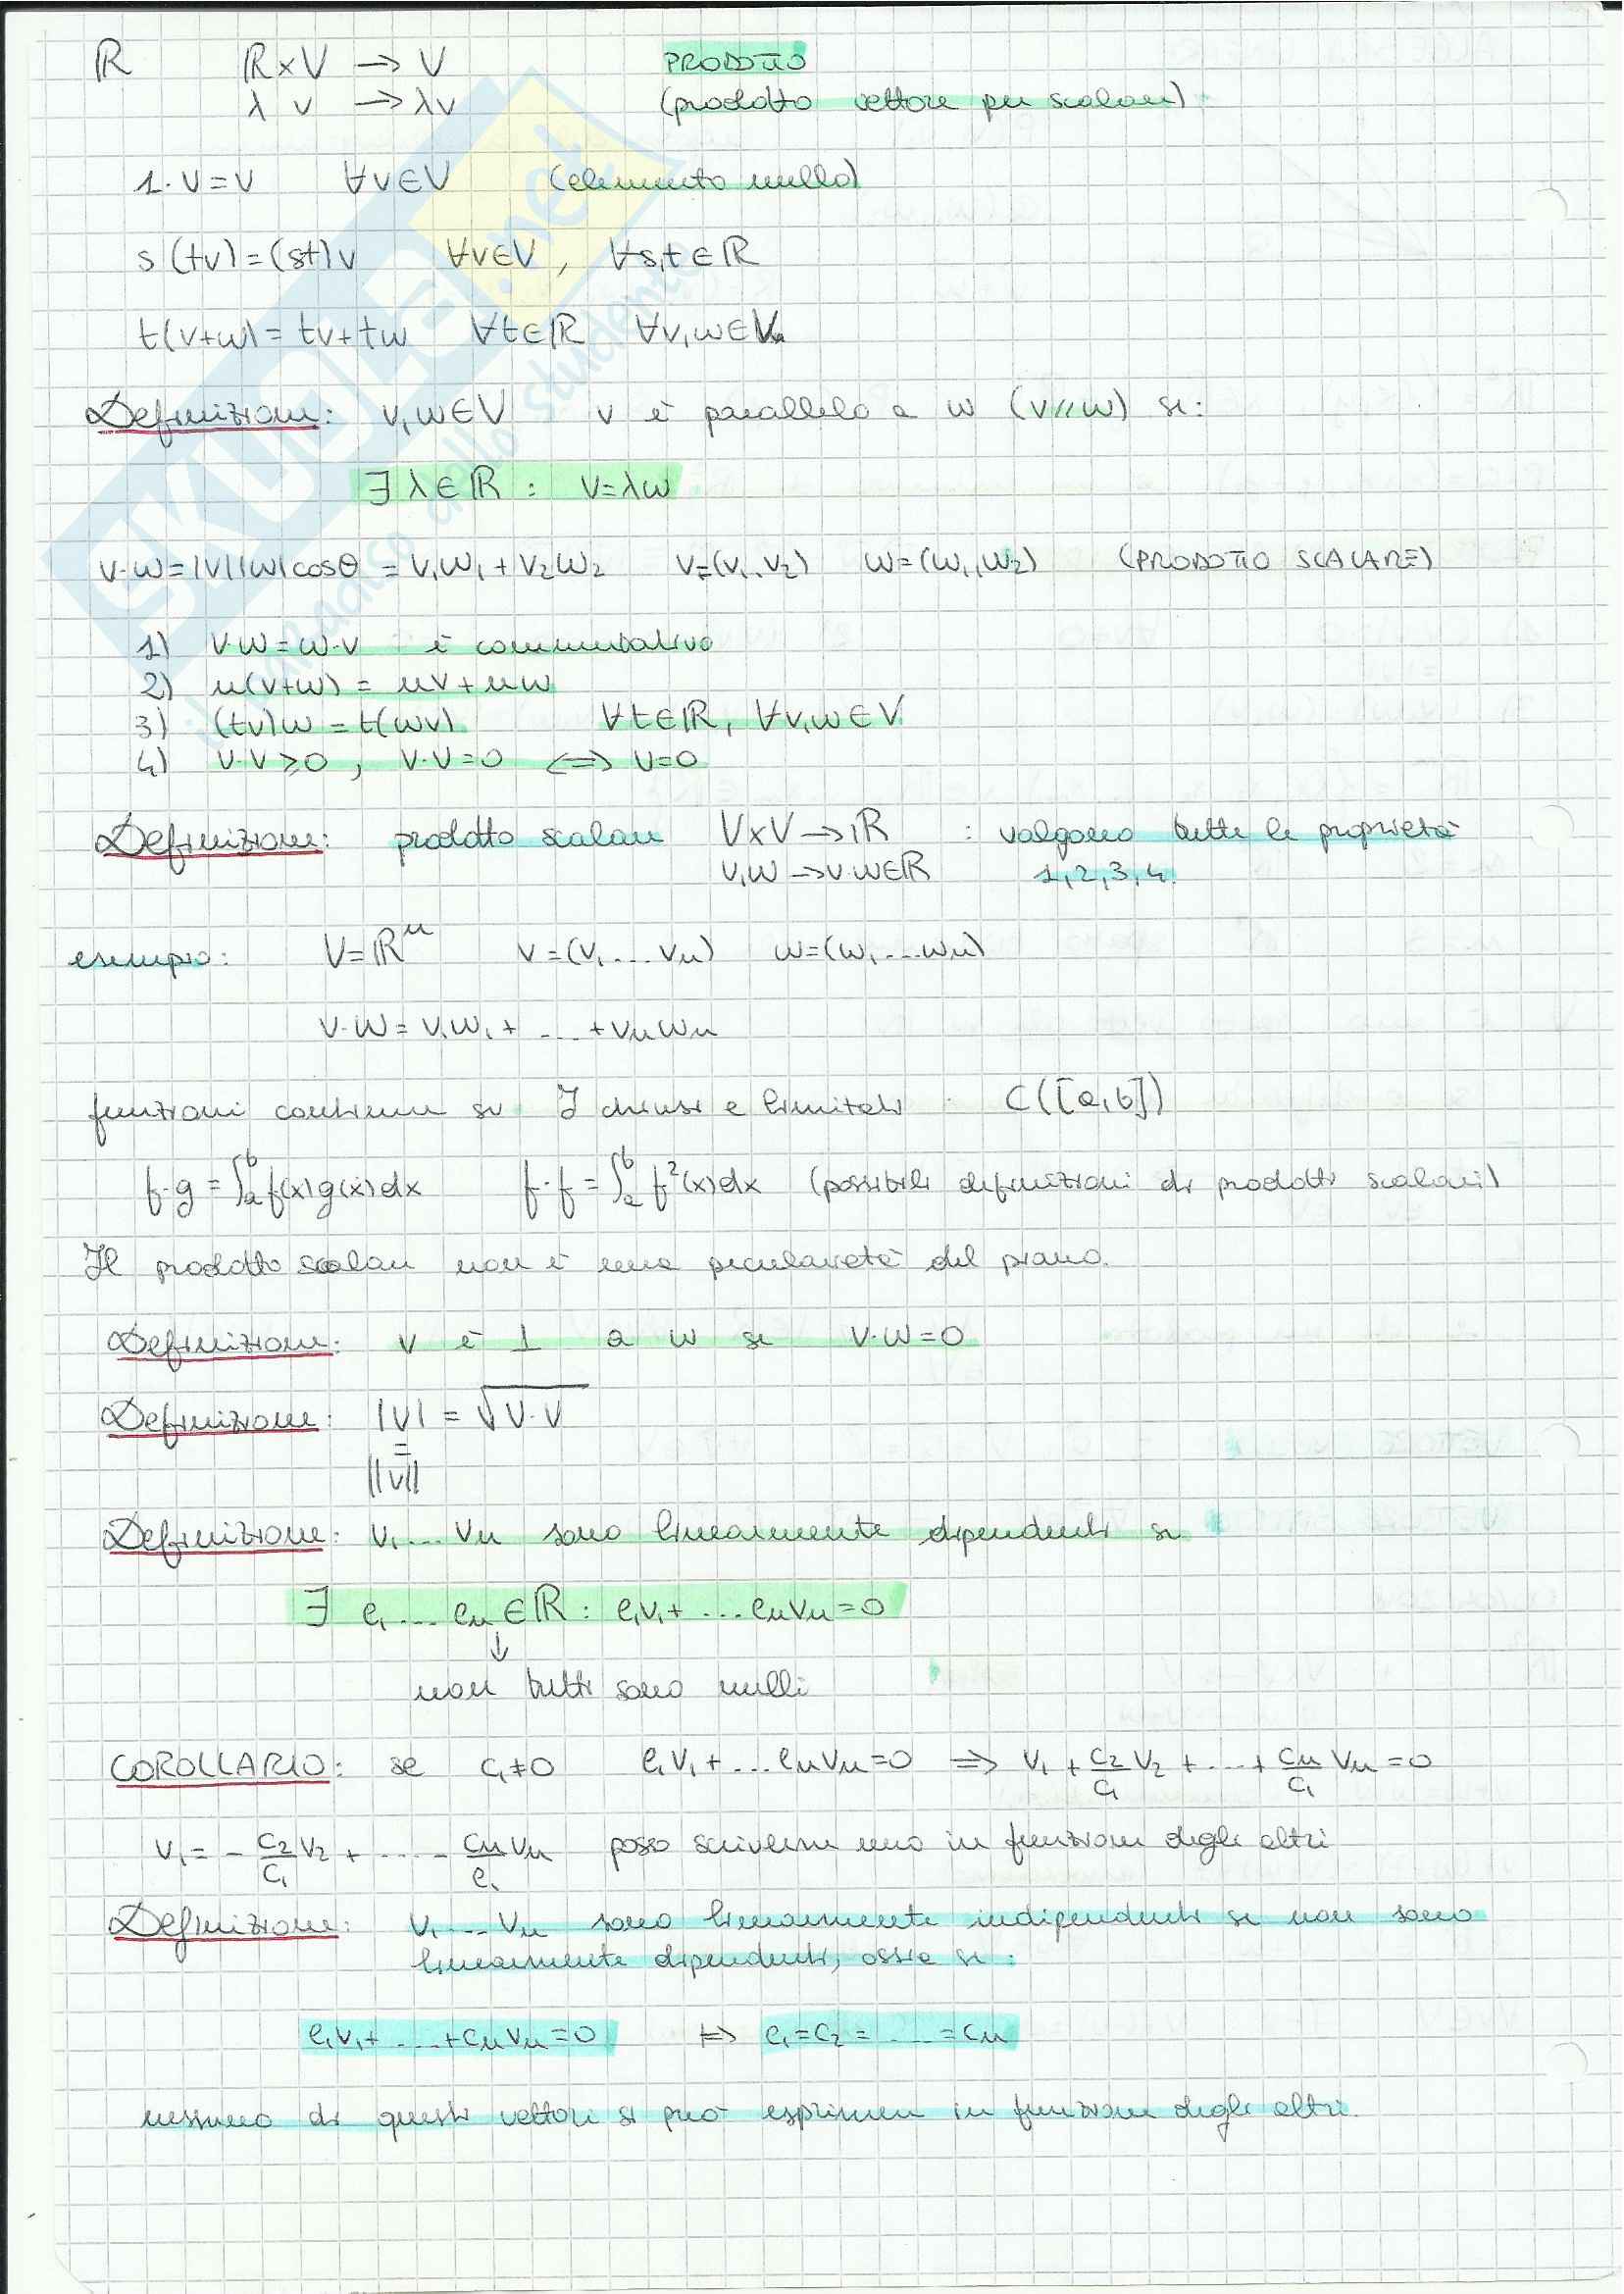 ℝ ℝ×V → V PRODOTTO
λ v → λv (prodotto vettore per scalare)
1·v=v ∀v∈V (elemento nullo)
s(tv)=(st)v ∀v∈V, ∀s,t∈ℝ
t(v+w)=tv+tw ∀t∈ℝ ∀v,w∈V
Definizione: v,w∈V v è parallelo a w (v//w) se:
∃λ∈ℝ: v=λw
v·w=|v||w|cosθ = v₁w₁+v₂w₂ v=(v₁,v₂) w=(w₁,w₂) (PRODOTTO SCALARE)
1) v·w=w·v è commutativo
2) u(v+w) = uv+uw
3) (tv)w = t(wv) ∀t∈ℝ, ∀v,w∈V
4) v·v≥0, v·v=0 ⟺ v=0
Definizione: prodotto scalare V×V→ℝ : valgono tutte le proprietà
v,w→v·w∈ℝ 1,2,3,4.
esempio: V=ℝⁿ v=(v₁...vₙ) w=(w₁...wₙ)
v·w= v₁w₁+ ... +vₙwₙ
funzioni continue su I chiusi e limitati C([a,b])
f·g=∫ₐᵇf(x)g(x)dx f·f=∫ₐᵇ f²(x)dx (possibili definizioni di prodotti scalari)
Il prodotto scalare non è una peculiarietà del piano.
Definizione: v è ⊥ a w se v·w=0
Definizione: |v| = √v·v
=
||v||
Definizione: v₁...vₙ sono linearmente dipendenti se
∃ c₁...cₙ∈ℝ: c₁v₁+...cₙvₙ=0
↓
non tutti sono nulli
COROLLARIO: se c₁≠0 c₁v₁+...cₙvₙ=0 ⟹ v₁+c₂/c₁ v₂+...+cₙ/c₁ vₙ=0
v₁=-c₂/c₁ v₂+...-cₙ/c₁ vₙ posso scriverne uno in funzione degli altri
Definizione: v₁...vₙ sono linearmente indipendenti se non sono
linearmente dipendenti, ossia se:
c₁v₁+...+cₙvₙ=0 ⟺ c₁=c₂=...=cₙ
nessuno di questi vettori si può esprimere in funzione degli altri.